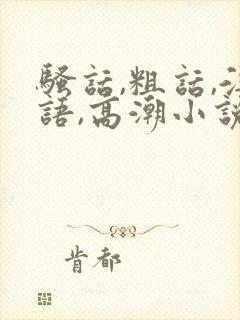 騷話,粗話,
語,高潮小說
肯都